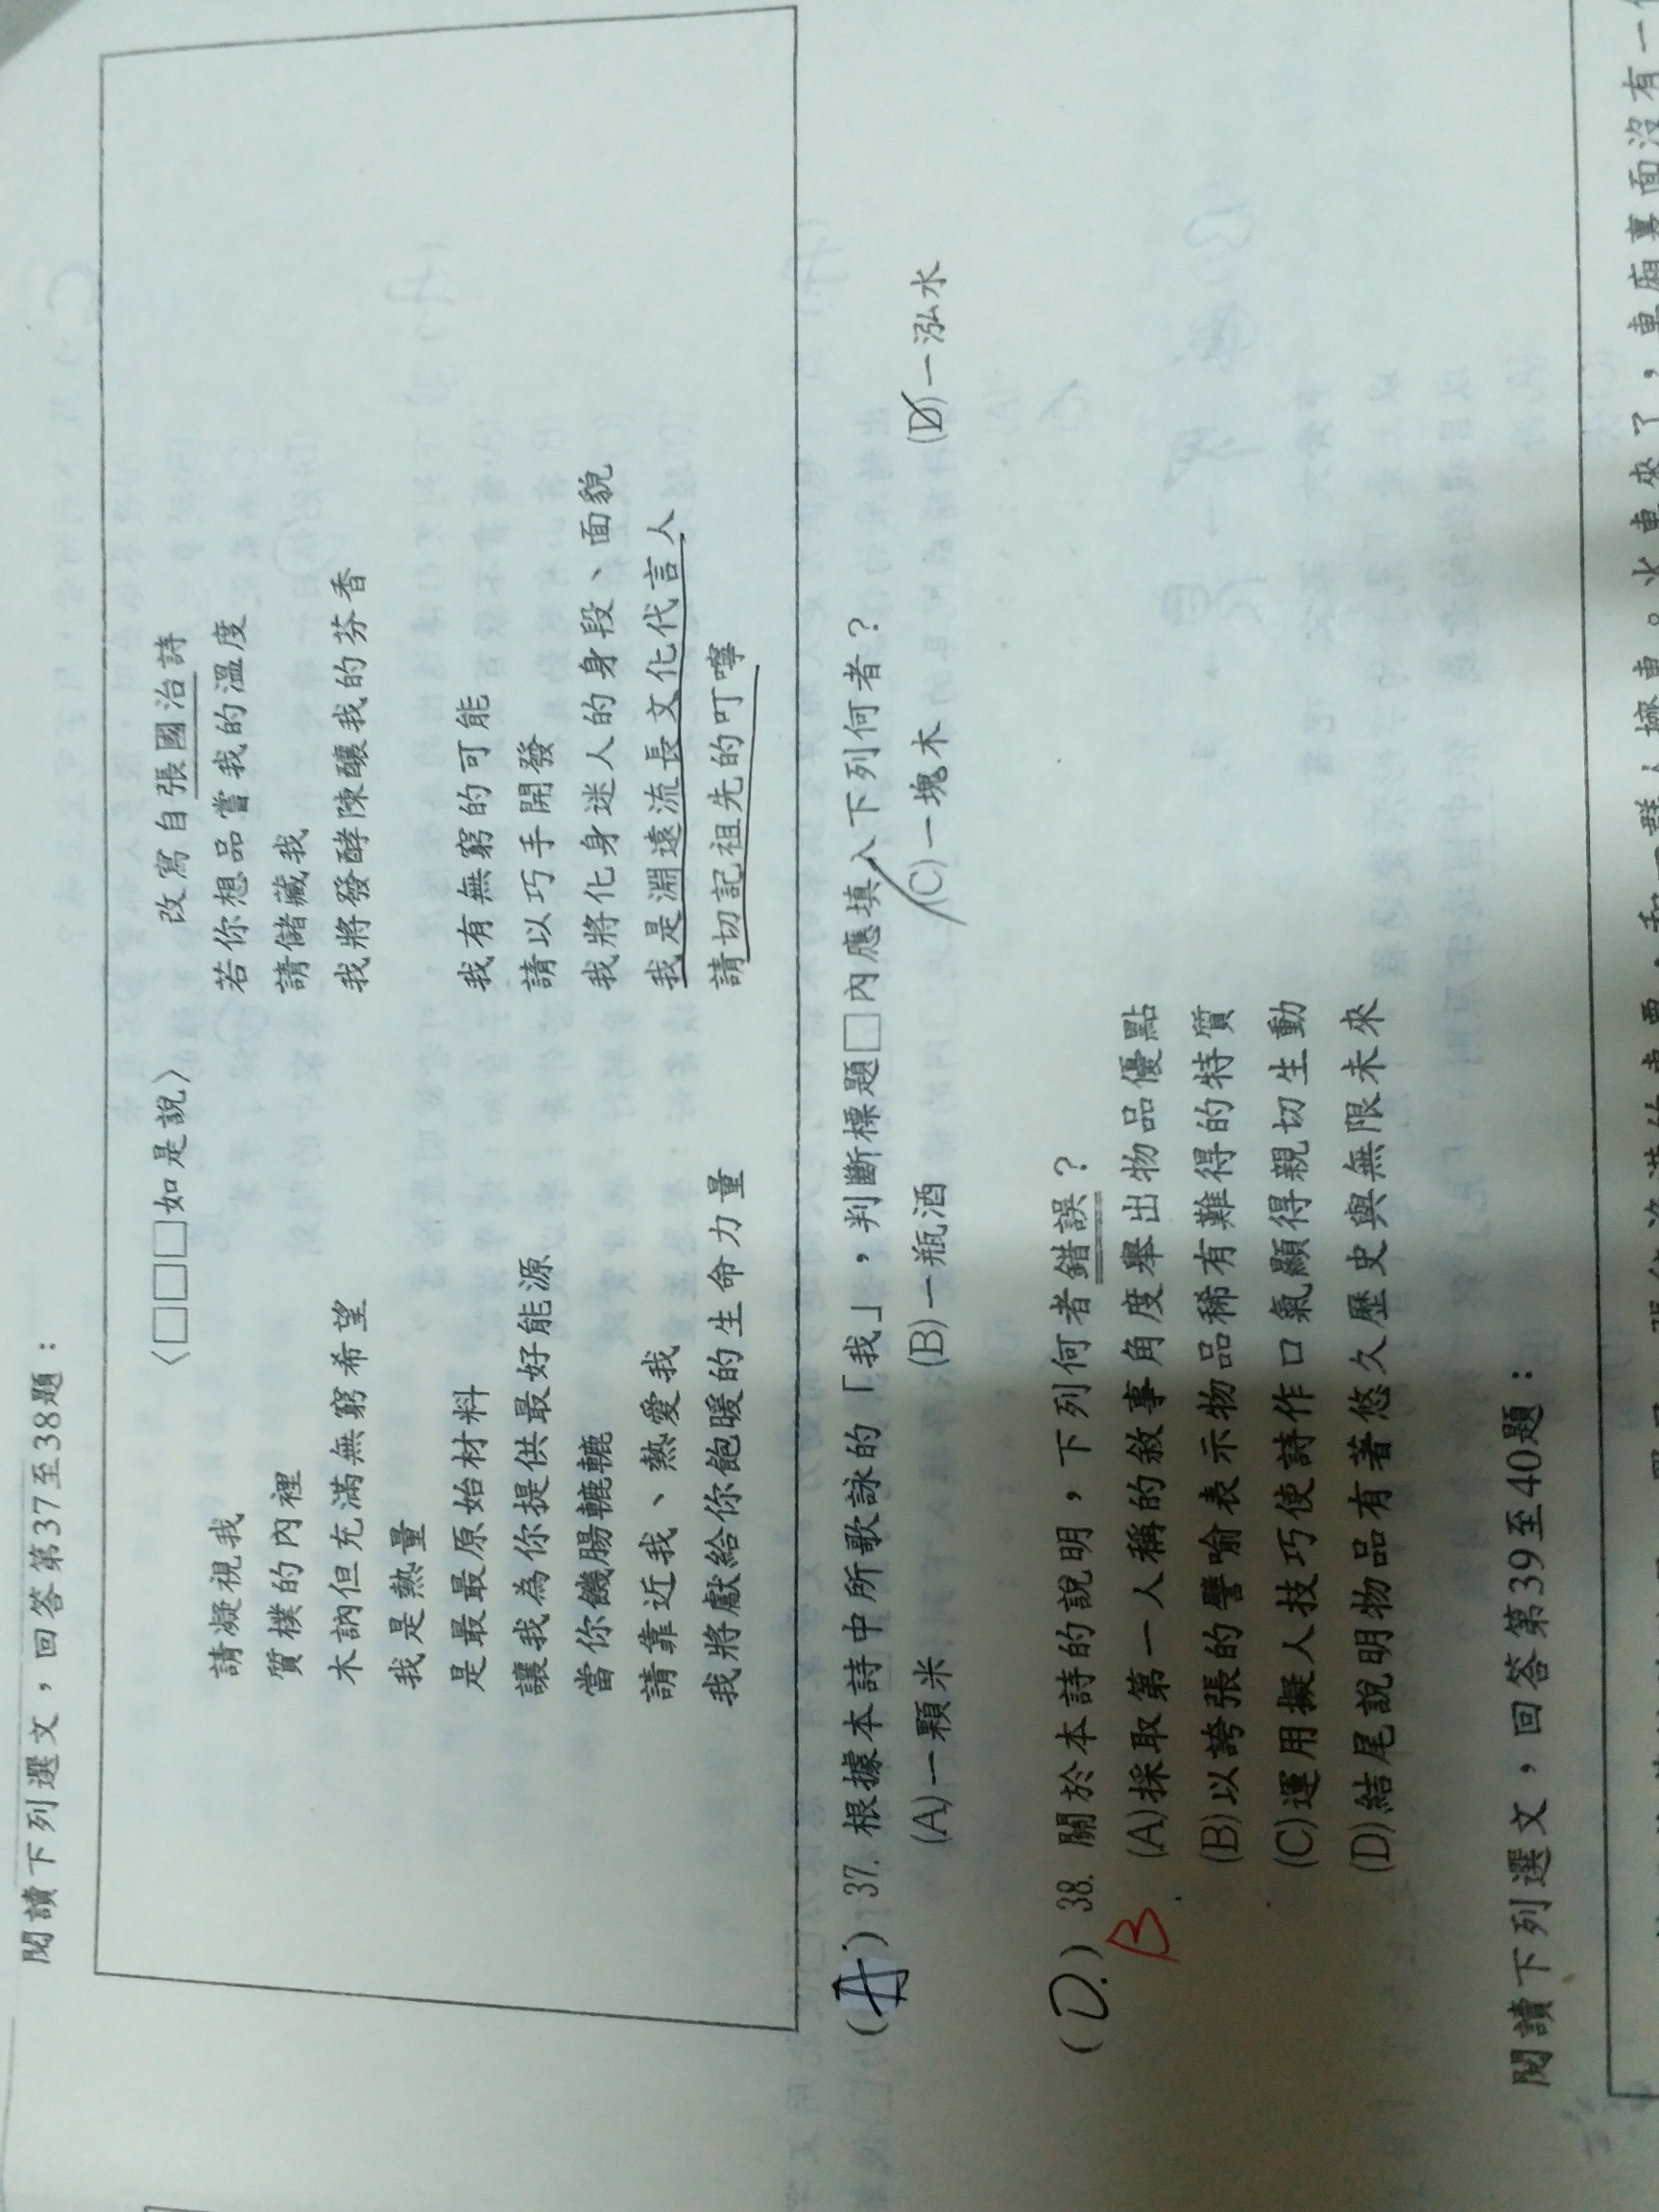 閱讀下列選文，回答第37至38題：
〈□□□如是說〉
改寫自張國治詩
請凝視我
質樸的內裡
木訥但充滿無窮希望
我是熱量
是最最原始材料
讓我為你提供最好能源
當你饑腸轆轆
請靠近我、熱愛我
我將獻給你飽暖的生命力量
若你想品嘗我的溫度
請儲藏我
我將發酵陳釀我的芬香
我有無窮的可能
請以巧手開發
我將化身迷人的身段、面貌
我是淵遠流長文化代言人
請切記祖先的叮嚀
(A) 37. 根據本詩中所歌詠的「我」，判斷標題□內應填入下列何者？
(A)一顆米 (B)一瓶酒 (C)一塊木 (D)一泓水
(D.) 38. 關於本詩的說明，下列何者錯誤？
B
(A)採取第一人稱的敘事角度舉出物品優點
(B)以誇張的譬喻表示物品稀有難得的特質
(C)運用擬人技巧使詩作口氣顯得親切生動
(D)結尾說明物品有著悠久歷史與無限未來
閱讀下列選文，回答第39至40題：
群人擠車。火車來了，車廂裏面沒有一